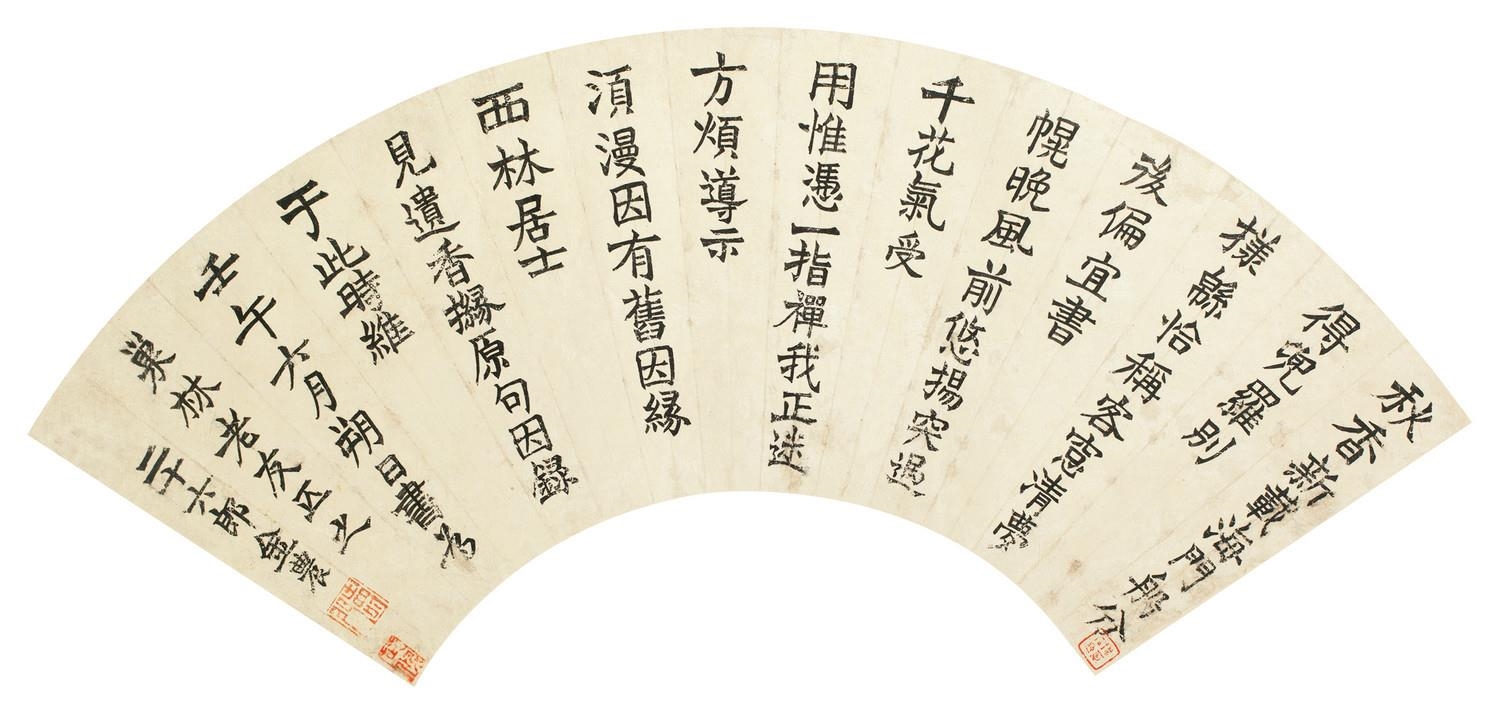 秋香新載海門船分
得兜羅別
樣緜恰稱客窓清夢
後偏宜書
幌晚風前悠揚突過
千花氣受
用惟憑一指禪我正迷
方煩導示
須漫因有舊因緣
西林居士
見遺香櫞原句因錄
于此時維
壬午六月朔日書为
巢林老友正之
二十六郎金農